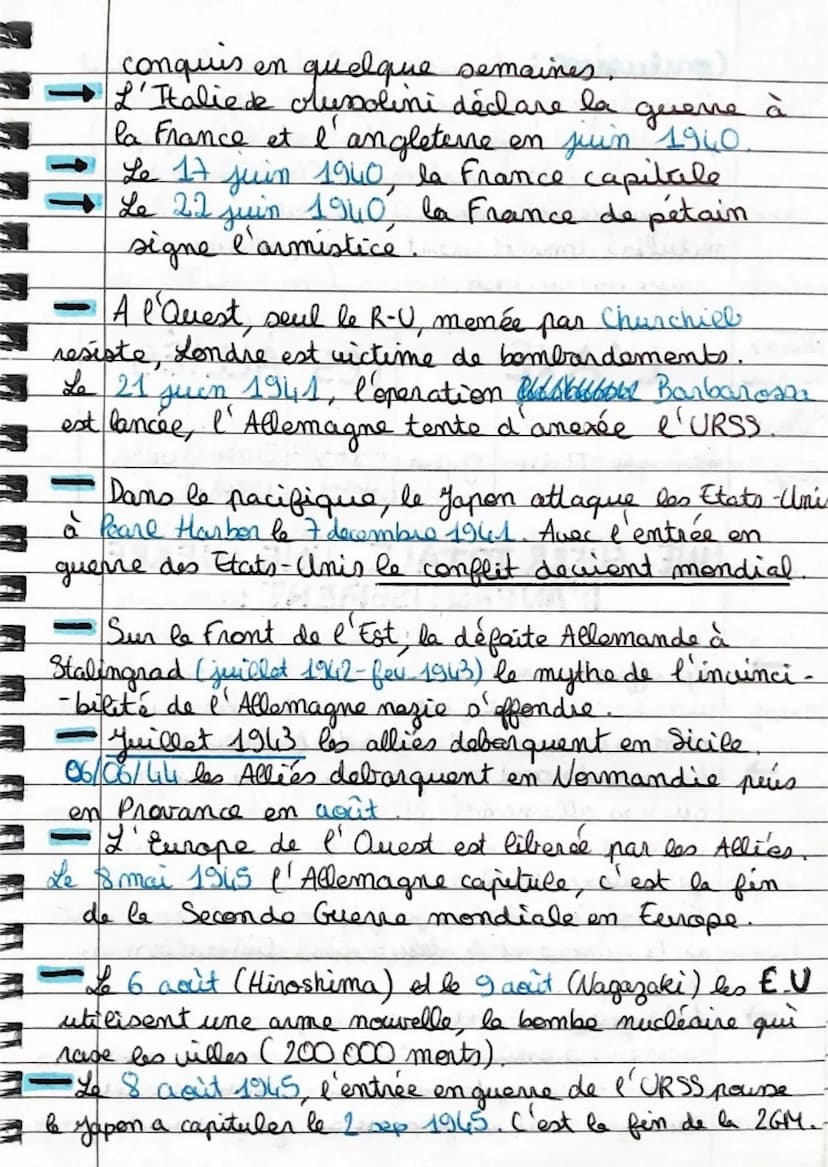 conquis en quelque semaines.
→ L'Italie de Mussolini déclare la guerre à
la France et l'angleterre en juin 1940.
→ Le 17 juin 1940, la France capitale
→ Le 22 juin 1940, la France de pétain
signe l'armistice.
- A l'Ouest, seul le R-U, menée par Churchiel
resiste, Londre est victime de bombardements.
Le 21 juin 1941, l'operation Barbarossa
est lancée, l'Allemagne tente d'anexée l'URSS.
- Dans le pacifique, le Japon attaque les Etats-Unis
à Pearl Harbor le 7 decembre 1941. Avec l'entrée en
guerre des Etats-Unis le conflit devient mondial.
- Sur la Front de l'Est, la défaite Allemande à
Stalingrad (juillet 1942-fev. 1943) le mythe de l'invinci-
-bilité de l'Allemagne nazie s'effondre.
- Juillet 1943 les alliés debarquent en Sicile.
06/06/44 les Alliés debarquent en Normandie puis
en Provance en août.
- L'Europe de l'Ouest est liberée par les Alliés.
Le 8 mai 1945 l'Allemagne capitule, c'est la fin
de la Seconde Guerre mondiale en Europe.
- Le 6 août (Hiroshima) et le 9 août (Nagazaki) les E.U
utilisent une arme nouvelle, la bombe nucléaire qui
rase les villes (200 000 morts).
- Le 8 août 1945, l'entrée en guerre de l'URSS pousse
le Japon a capituler le 2 sep 1945. C'est la fin de la 2GM.